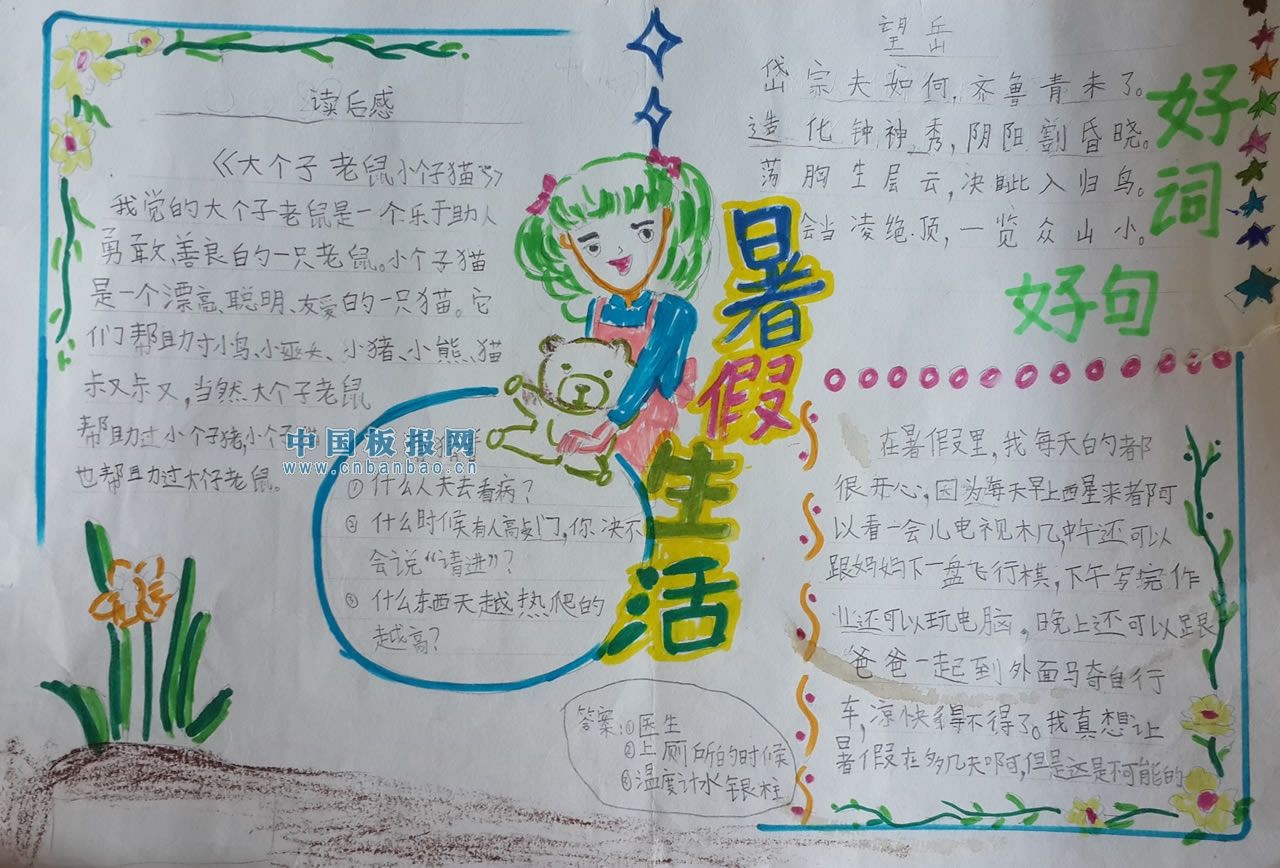 读后感
《大个子老鼠小个子猫5》
我觉的大个子老鼠是一个乐于助人
勇敢、善良的一只老鼠。小个子猫
是一个漂亮、聪明、友爱的一只猫。它
们帮助小鸟、小巫女、小猪、小熊、猫
叔叔,当然大个子老鼠
帮助过小个子猪,小个子猫
也帮助过大个子老鼠。
中国板报网
www.cnbanbao.cn
①什么人天天去看病?
②什么时候有人高敲门,你决不
会说“请进”?
③什么东西天越热爬的
越高?
答案:①医生
②上厕所的时候
③温度计水银柱
暑假生活
望岳
岱宗夫如何,齐鲁青未了。
造化钟神秀,阴阳割昏晓。
荡胸生层云,决眦入归鸟。
会当凌绝顶,一览众山小。
好词
好句
在暑假里,我每天的都
很开心,因为每天早上西星来者阿
以看一会儿电视机,中午还可以
跟妈妈下一盘飞行棋,下午写完作
业还可以玩电脑,晚上还可以跟
爸爸一起到外面骑自行
车,凉快得不得了。我真想让
暑假在多几天啊,但是这是不可能的